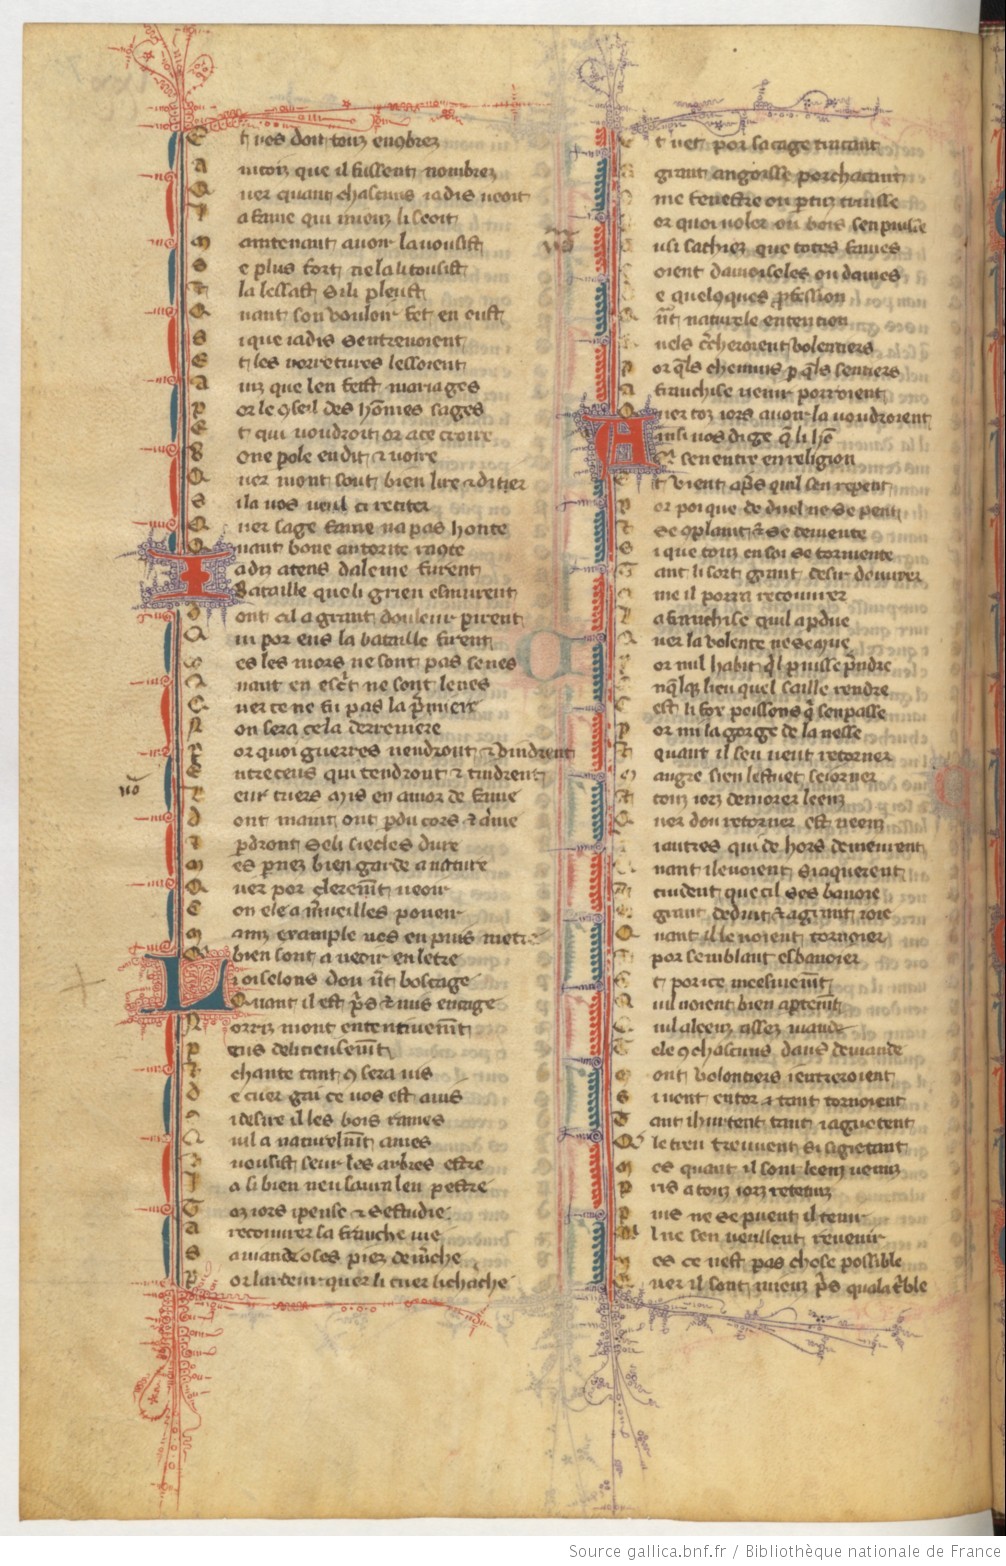 E t vos dont touz enobrez
A incois que il fussent nombrez
Q uer quant chascuns iadis ueoit
L a fame qui mieuz li seoit
M aintenant auoir la uousist
S e plus fort ne la li tousist
T la lessast se li pleust
Q uant son vouloir fet en eust
S i que iadis sentreuoient
E t les norretures lessoient
A inz que len feist mariages
P or le 9seil des hom̃es sages
E t qui uoudroit or ace croire
B one pole en dit 7 uoire
Q uer mont sout bien lire 7 ditier
S il a vos ueul ci reciter
Q uer sage fame na pas honte
Q uant bone autorite raq̃te
I adiz atens daleine furent
Bataille que li grieu esmurent
D ont cil a grant douleur pirent
Q ui por eus la bataille firent
M es les mors ne sont pas seues
Q uant en esc̃t ne sont leues
Q uer ce ne fu pas la p̃miere
N on sera cela derreniere
P or quoi guerres uendront 7 uindrent
E ntre ceus qui tendront 7 tindrent
L eur cuers mis en amor de fame
D ont maint ont pdu cors 7 ame
7 pdront se li siecles dure
M es pnez bien garde a nature
Q uer por 9
C on ele a m̃ueilles pouer
M ainz example uos en puis metre
Q bien sont a ueoir en letre
L ioiselons dou ũt boscage
Quant il est p̃s 7 mis en cage
N orriz mont ententiuem̃t
L eus delicieusem̃t
7 chante tant 9 sera uis
D e cuer gai ce uos est auis
S i desire il les bois rames
Q uil a naturelm̃t ames
7 uousist seur les arbres estre
I a si bien neu saura len pestre
T oz iors i pense 7 sestudie
A recouurer la franche uie
S a uiande o ses piez demĩche
P or lardeur quer li cuer li chache
E t uet por sa cage tracant
A grant angoisse porchacant
C ome fenestre ou ptuz truisse
P or quoi uoler ou bois sen puisse
A usi sachiez que totes fames
S oient damoiseles ou dames
D e quelq̃ques pfession
O nt naturele entencion
Q uels c̃cheroient volentiers
P or q̃ls chemins p q̃ls sentiers
A franchise uenir porroient
Q uer toz iors auoir la uoudroient
A insi uos di ge q̃ li hõ
Qui sen entre en religion
E t vient ap̃s quil sen repent
P or poi que de duel ne se pent
7 se 9plaint 7 se demente
S i que touz en soi se tormente
T ant li sort grant desir douurer
C ome il porra recourer
L a franchise quil a pdue
Q uer la volente ne se mue
P or nul habit q̃l puisse p̃ndre
E nq̃lq̃ lieu quel saille rendre
C est li fox poissons q̃ sen passe
P or mi la gorge de la nasse
Q quant il sen ueut retorner
M augre sien lestuet seiorner
A touz iorz demorer leenz
Q uer dou retorner est neenz
L i autres qui de hors demeurent
Q uant il le uoient si aquerent
7 cuident que cil ses banoie
A grant deduit 7 a grant ioie
Q uant il le uoient tornoier
7 por semblant esbanoier
E t por ice meesmem̃t
Q uil uoient bien aptemt̃
Q uil a leenz assez uiande
T ele 9 chascuns daus demande
M ont volontiers i entreroient
S i uont entor 7 tant tornoient
T ant i hurtent tant i aguetent
Q le treu treuuent si si gietant
M es quant il sont leenz uenuz
P ris a touz iorz retenuz
P uis ne se puent il tenir
Q l ne sen ueullent reuenir
M es ce nest pas chose possible
Q uer il sont mieuz p̃s qual a t̃ble
Source gallica.bnf.fr / Bibliothèque nationale de France